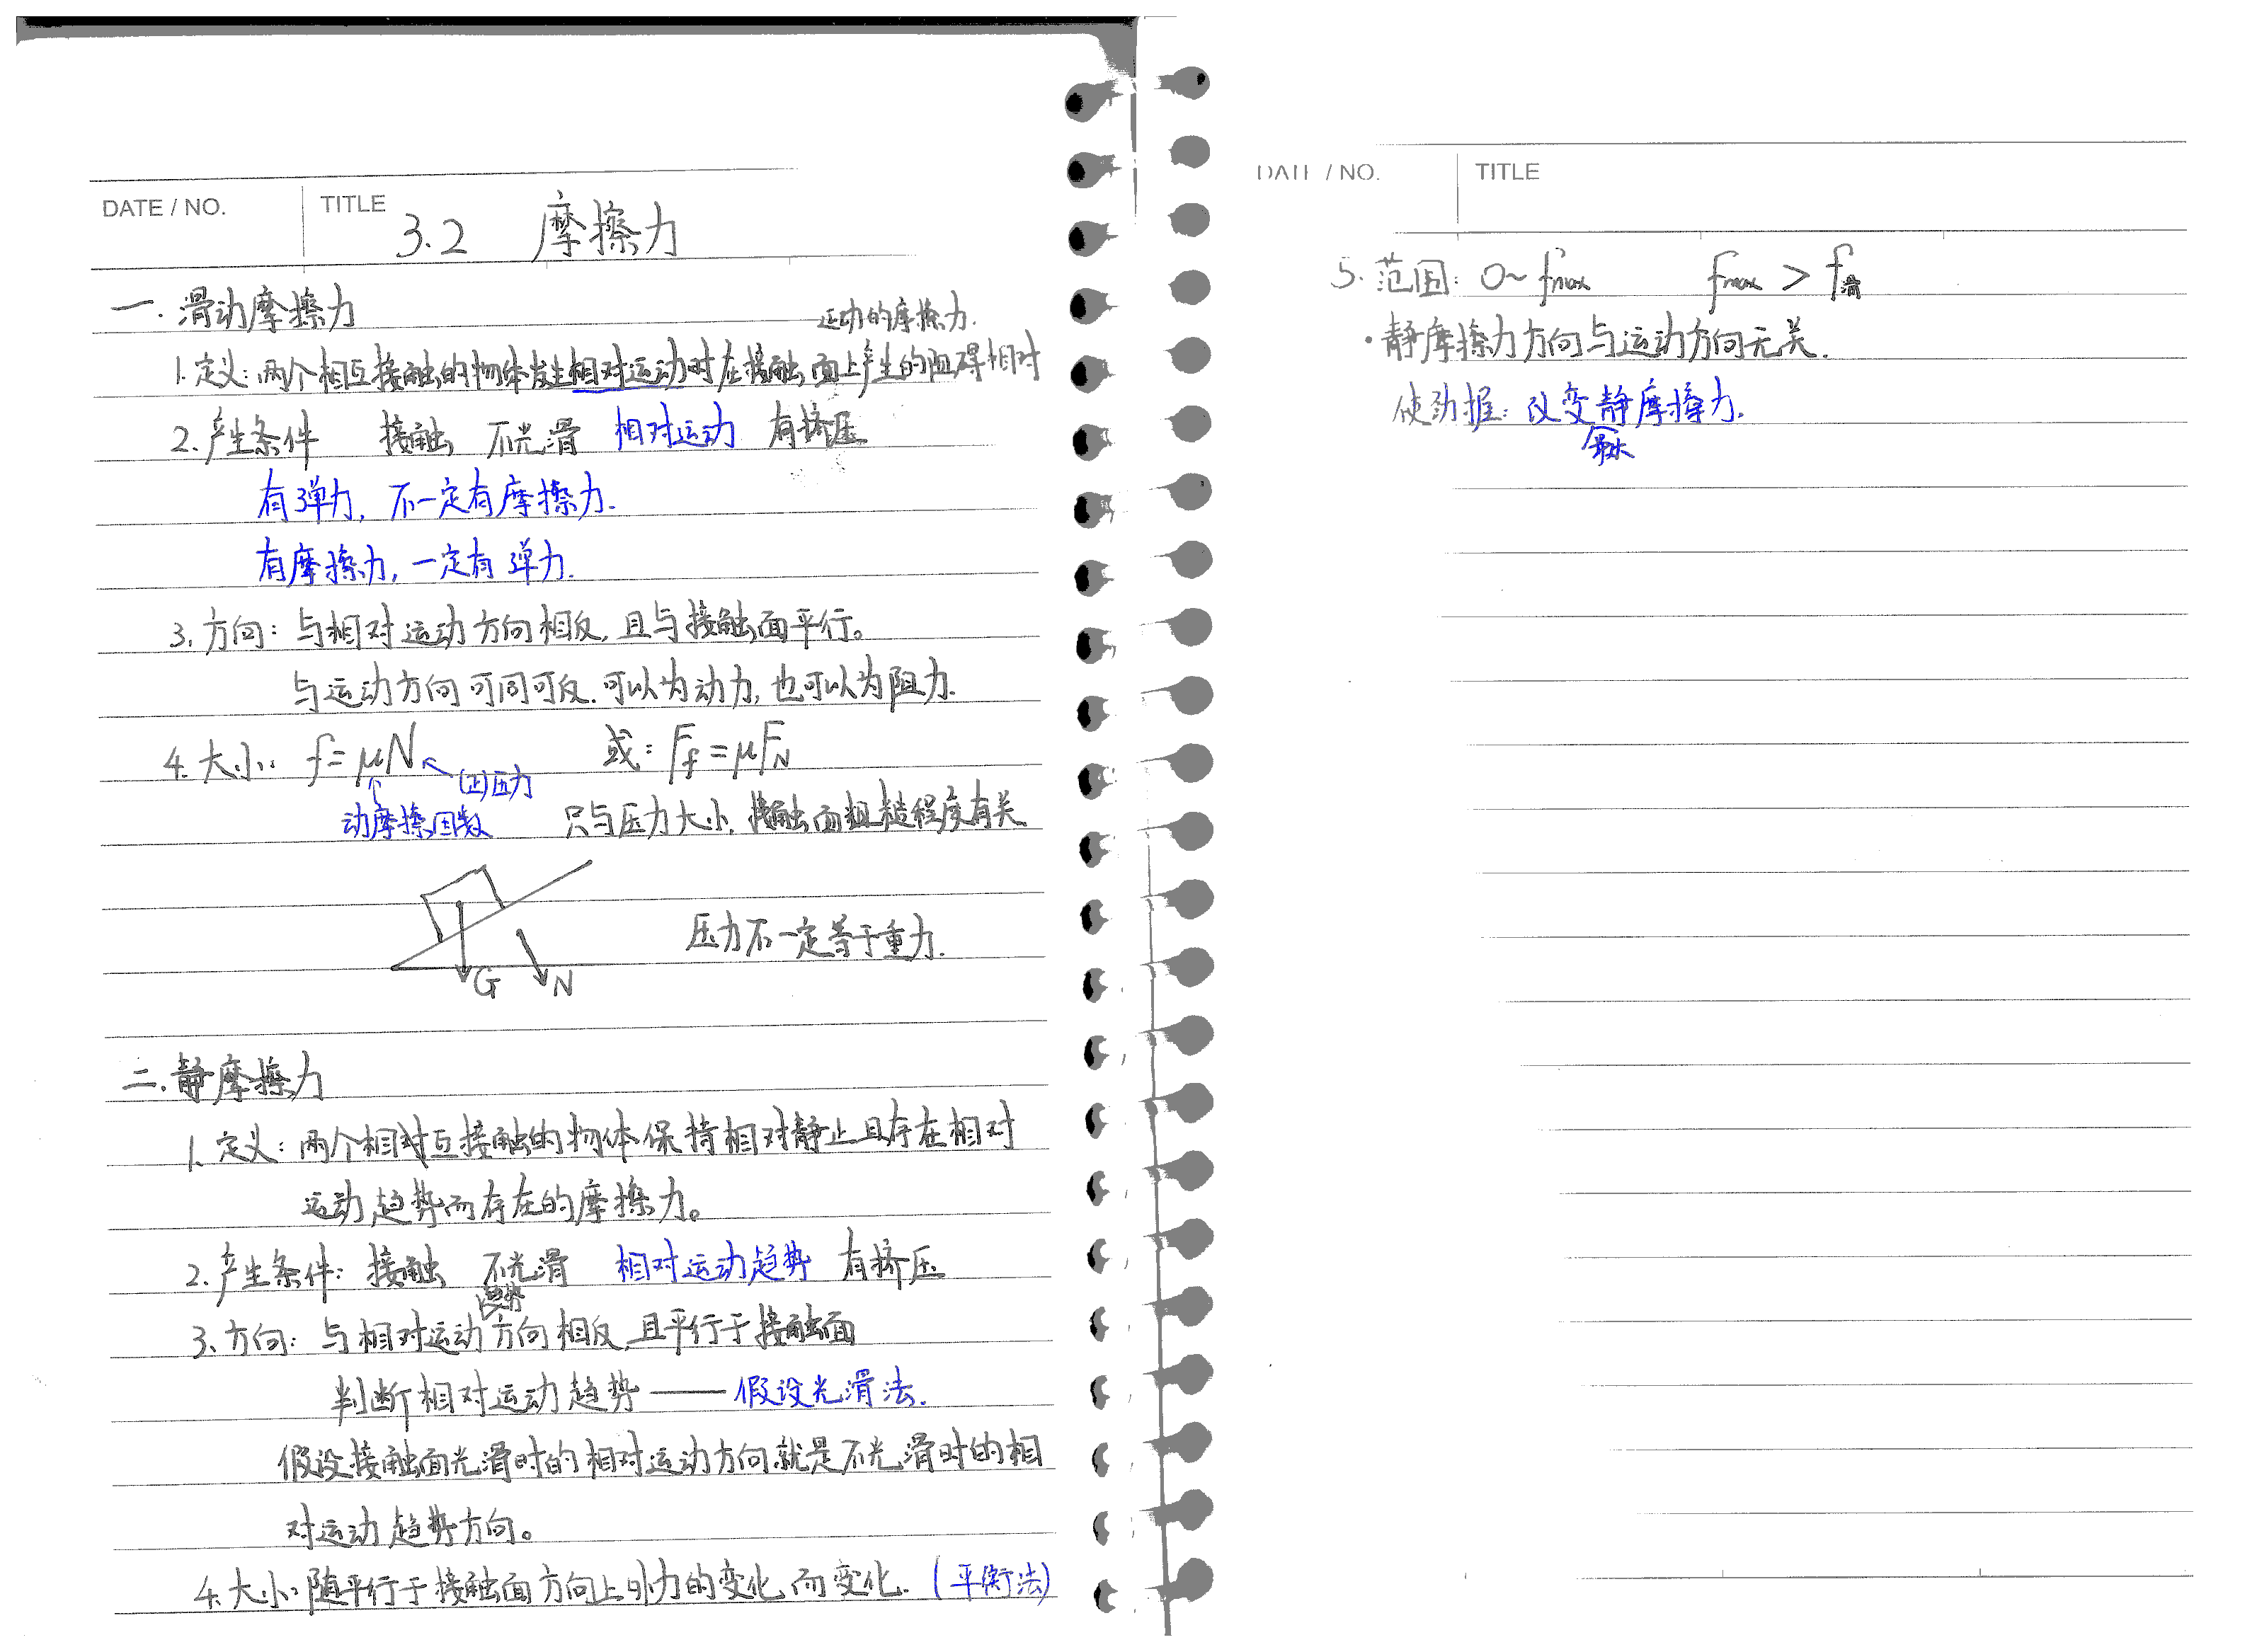 DATE / NO.
TITLE
3.2 摩擦力
一. 滑动摩擦力
运动的摩擦力.
1. 定义: 两个相互接触的物体发生相对运动时在接触面上产生的阻碍相对
2. 产生条件 接触 不光滑 相对运动 有挤压
有弹力, 不一定有摩擦力.
有摩擦力, 一定有弹力.
3. 方向: 与相对运动方向相反, 且与接触面平行。
与运动方向可同可反. 可以为动力, 也可以为阻力.
4. 大小: f=μN 或: Ff=μFN
(正)压力
动摩擦因数 只与压力大小, 接触面粗糙程度有关
压力不一定等于重力.
G N
二. 静摩擦力
1. 定义: 两个相对互接触的物体保持相对静止且存在相对
运动趋势而存在的摩擦力。
2. 产生条件: 接触 不光滑 相对运动趋势 有挤压
趋势
3. 方向: 与相对运动方向相反, 且平行于接触面
判断相对运动趋势 —— 假设光滑法.
假设接触面光滑时的相对运动方向就是不光滑时的相
对运动趋势方向。
4. 大小: 随平行于接触面方向上外力的变化而变化. (平衡法)
DATE / NO.
TITLE
5. 范围: 0~fmax fmax > f滑
·静摩擦力方向与运动方向无关.
使劲握: 改变静摩擦力.
最大